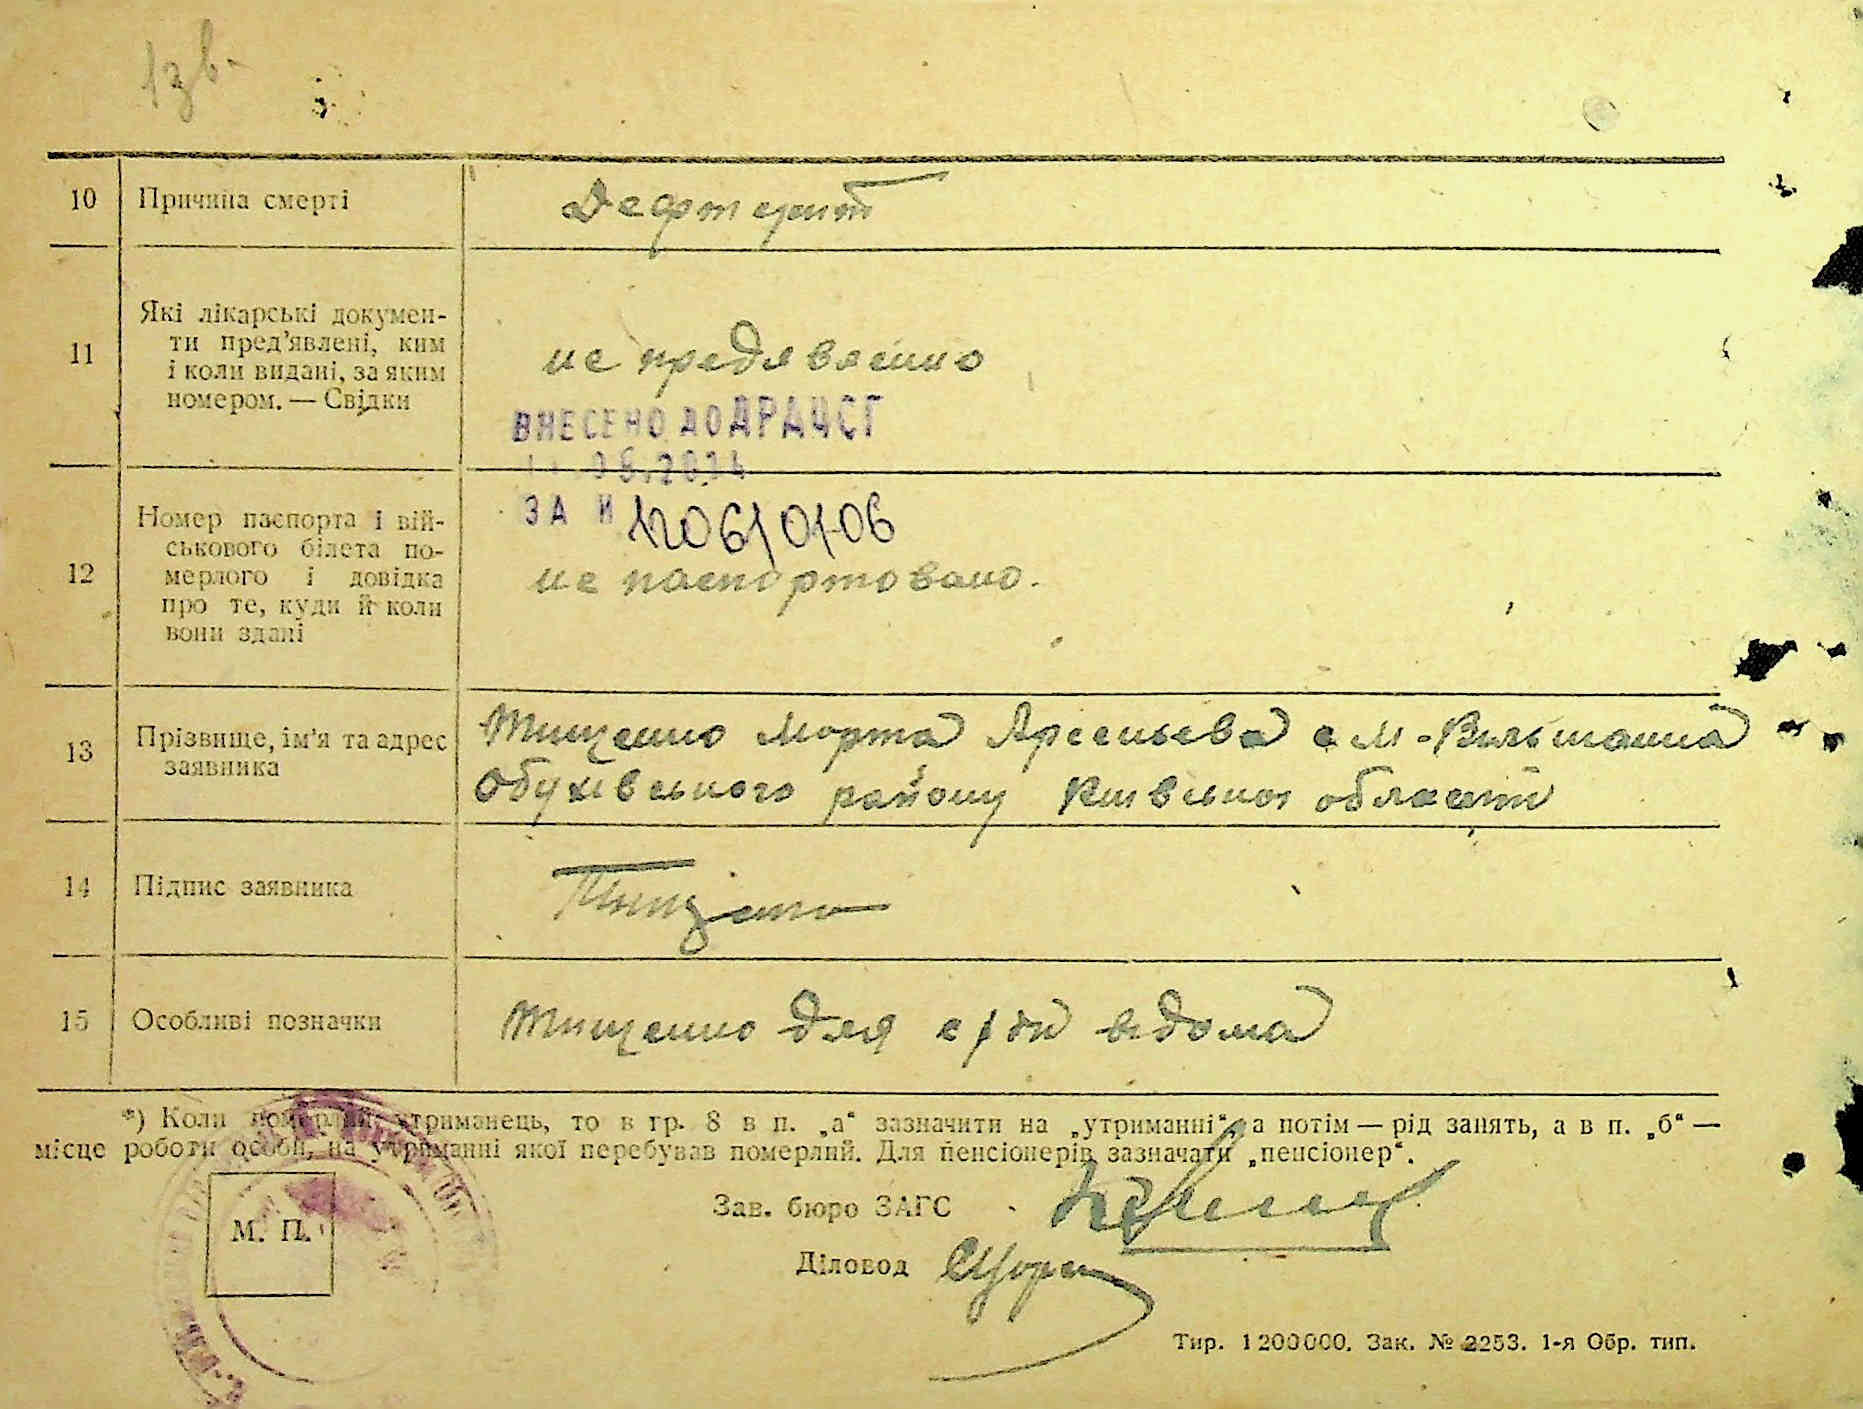 1зв.
10 Причина смерті Дефтерит
11 Які лікарські докумен-
ти пред'явлені, ким
і коли видані, за яким
номером. — Свідки
не предявленно
ВНЕСЕНО ДО ДРАЦСГ
ЗА №
12 Номер паспорта і вій-
ськового білета по-
мерлого і довідка
про те, куди й коли
вони здані
не паспортовано.
13 Прізвище, ім'я та адрес
заявника
Тищенко Марта Арсеньева с М-Вильшанка
Обухівського району Київської области
14 Підпис заявника Тищенко
15 Особливі позначки Тищенко для відома
*) Коли померлий утриманець, то в гр. 8 в п. „а“ зазначити на „утриманні“ а потім — рід занять, а в п. „б“ —
місце роботи особи, на утриманні якої перебував померлий. Для пенсіонерів зазначати „пенсіонер“.
М. П.
Зав. бюро ЗАГС
Діловод
Тир. 1200000. Зак. № 2253. 1-я Обр. тип.